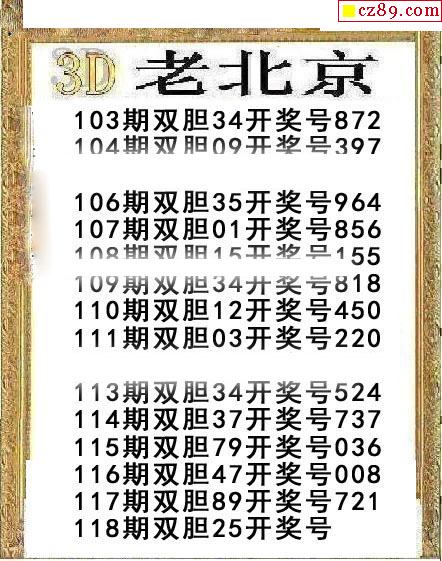 cz89.com
3D 老北京
103期双胆34开奖号872
104期双胆09开奖号397
106期双胆35开奖号964
107期双胆01开奖号856
108期双胆15开奖号155
109期双胆34开奖号818
110期双胆12开奖号450
111期双胆03开奖号220
113期双胆34开奖号524
114期双胆37开奖号737
115期双胆79开奖号036
116期双胆47开奖号008
117期双胆89开奖号721
118期双胆25开奖号